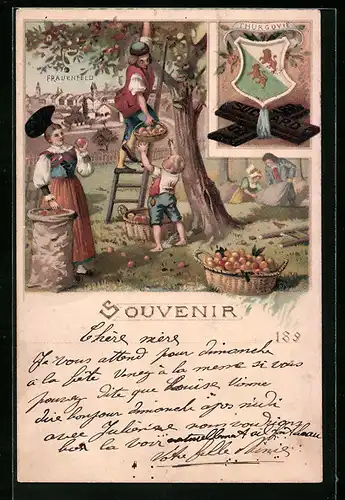 THURGOVIE
FRAUENFELD
SOUVENIR
189
Chère mère
Je vous attend pour dimanche
à la fête Venez à la messe si vous
pouvez dite que Louise vienne
dire bonjour dimanch après midi
avec Julienne nous voudrions
la voir
votre fille